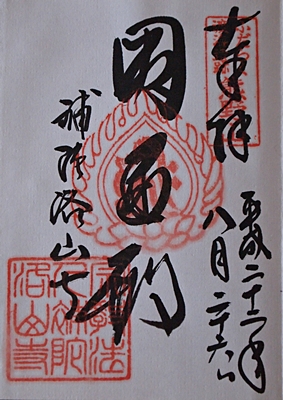 奉拝
平成二十二年
八月二十六日
圓通殿
補陀洛山寺